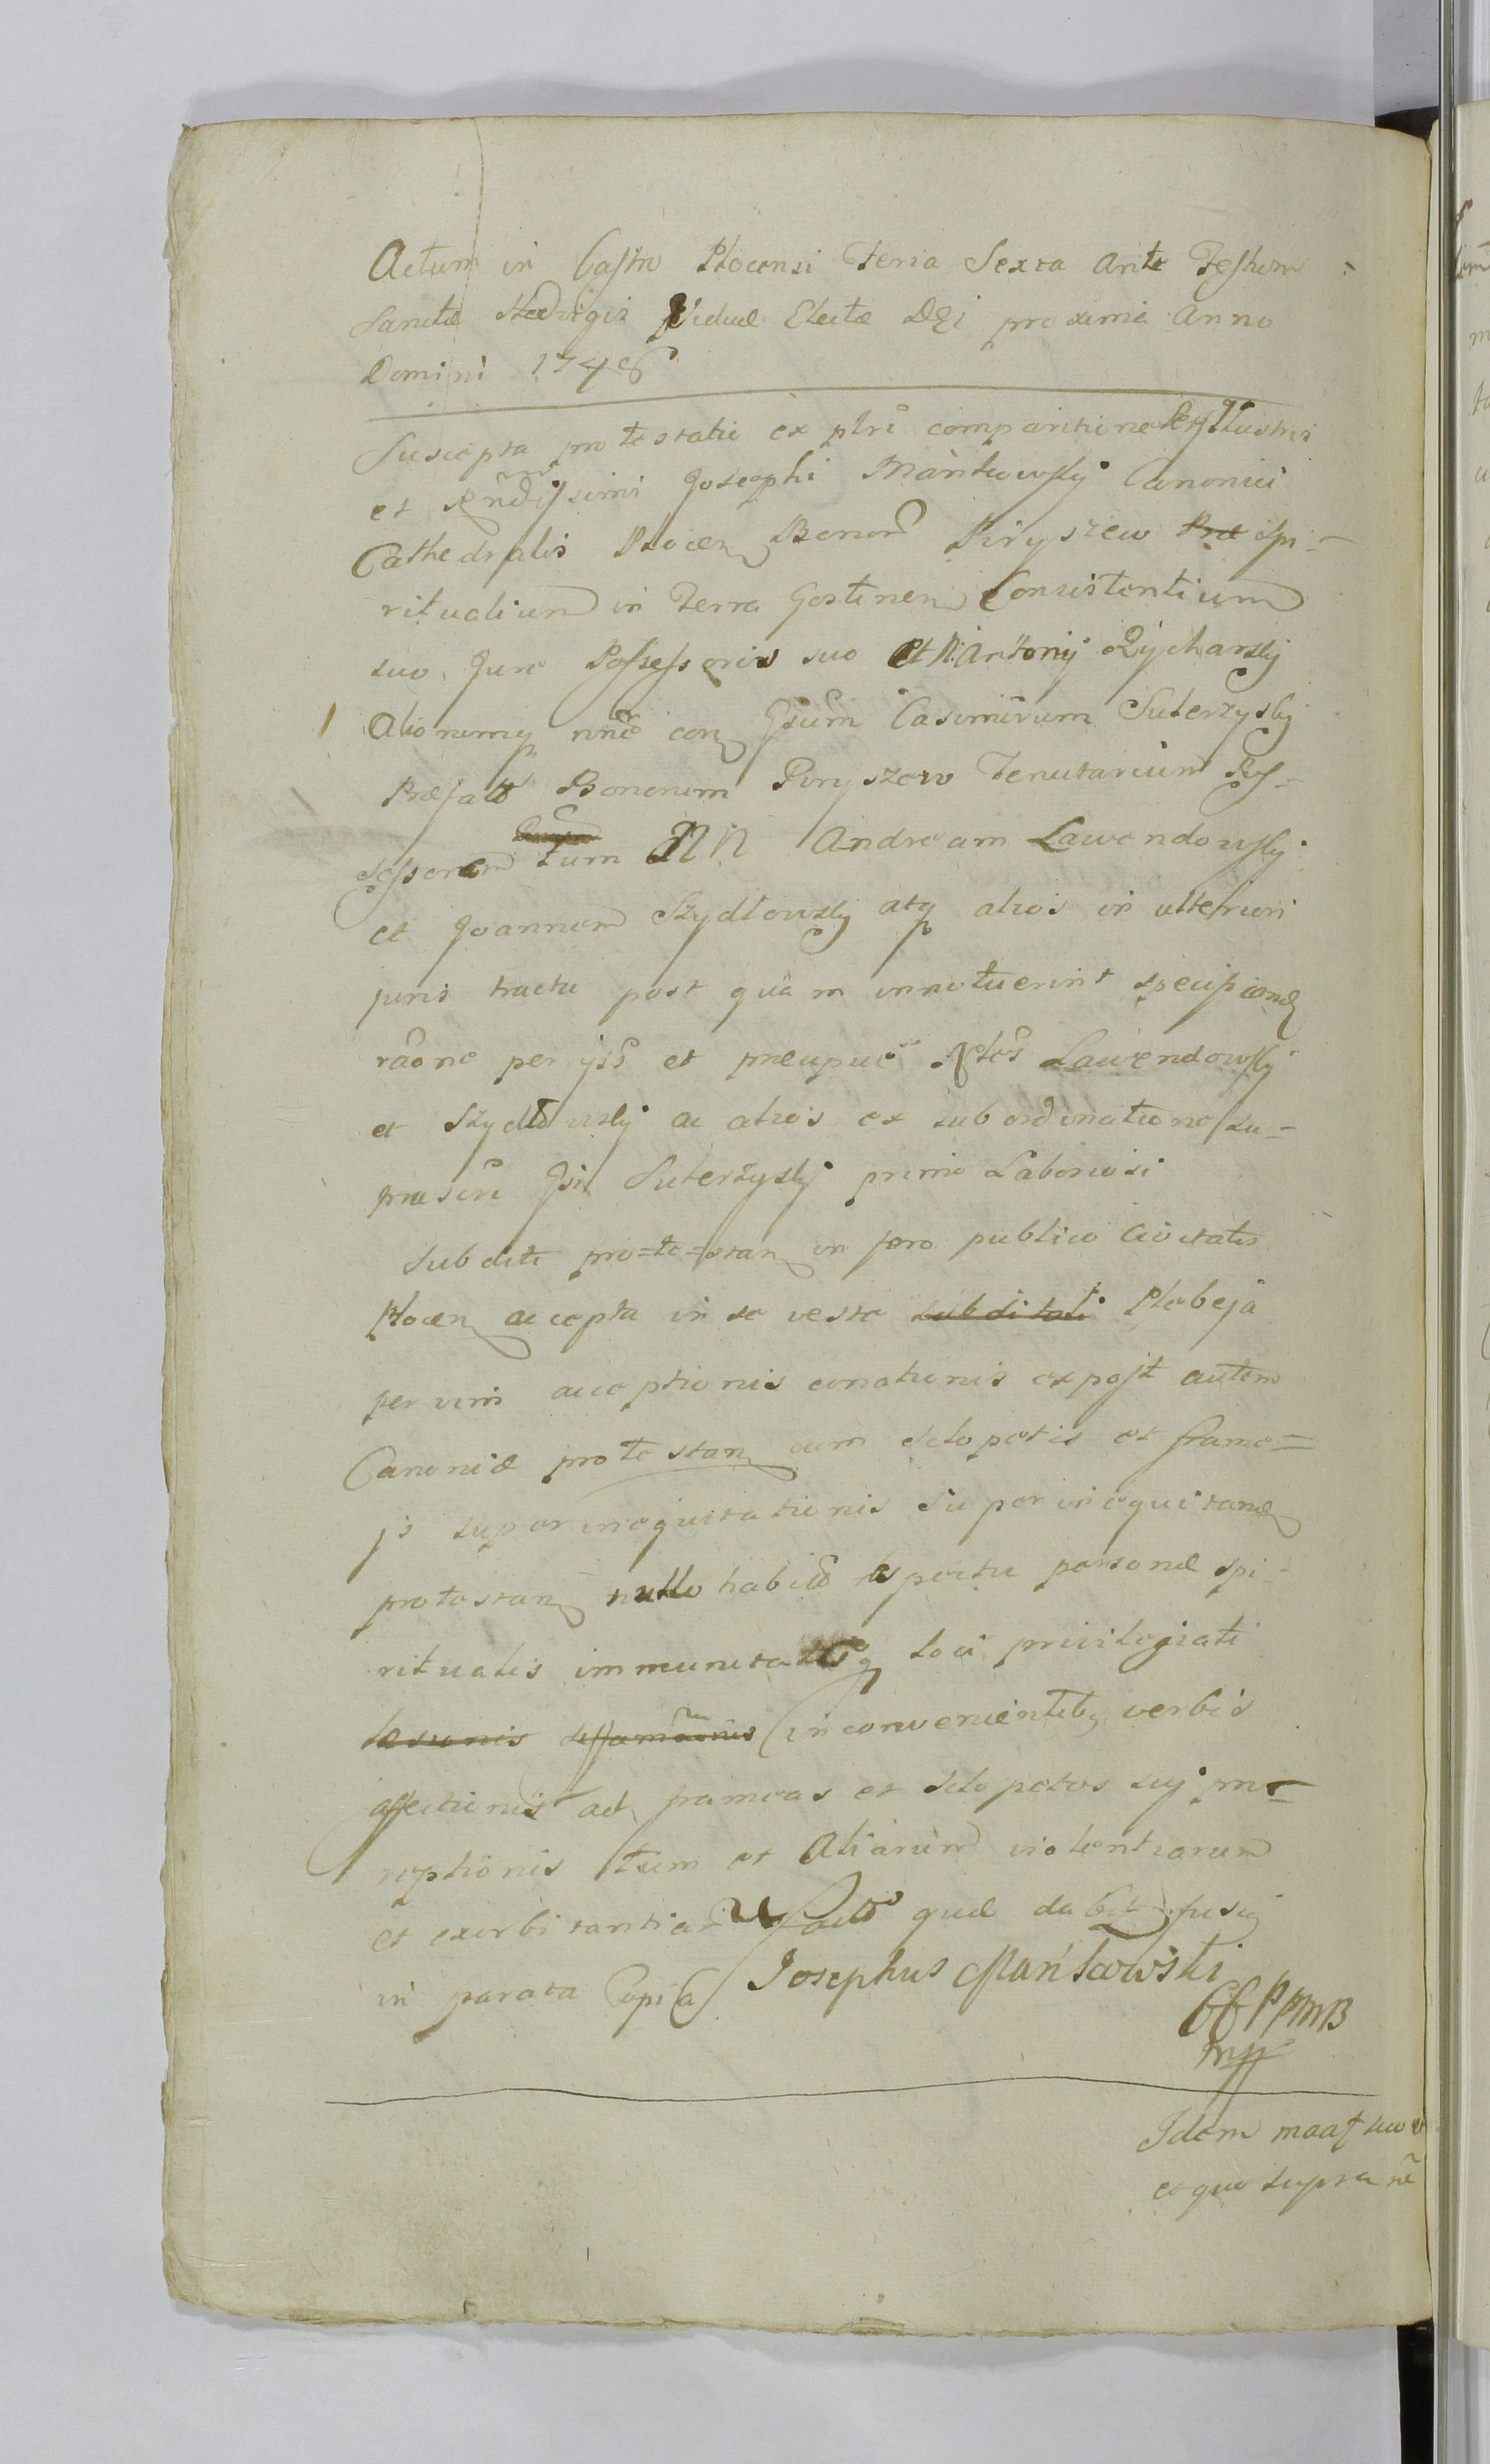 Actum in Castro Plocensi Feria Sexta Ante Festum
Sanctæ Hedvigis Viduæ Electæ Dei proxima Anno
Domini 1746
Suscepta protestatio ex plri comparitione Perillustris
et Rndissimi Josephi Mańkowskj Canonici
Cathedralis Plocen Bonor Piryszew Præ Spi-
ritualium in Terra Gostinen Consistentium
suo Jure Possessoris suo Et N. Antonij Rycharskj
Aliorumq nne con Gsum Casimirum Suterzyskj
Præfato Bonorum Piryszew Tenutarium Pos-
sessorem tum NN Andream Lawendowskj
et Joannem Szydłowskj atq alios in ulteriori
juris tractu post quam innotuerint specificand
raone per ijs et præcipue Nbles Lawendowskj
et Szydłowskj ac alios ex subordinatione su-
prascri Gsi Suterzyskj primo Laboriosi
Subditi pro=te=stan in foro publico Civitatis
Plocen accepta in se veste subditali Plebeja
per vim acceptionis conationis expost autem
Canoniæ protestan cum sclopetis et frame=
js superinequitationis Superinequitand
protestan nullo habito respectu personæ spi-
ritualis immunitatisq loci privilegiati
læsionis diffamaonis inconvenientibq verbis
affectionis ad frameas et sclopetos sui pro-
reptionis tum et Aliarum violentiarum
et exorbitantiar facto quæ dabit fusiq
in parata Copia Josephus Mańkowski
CCPPMB
mpp
Idem maat suo et
eoque supra ne